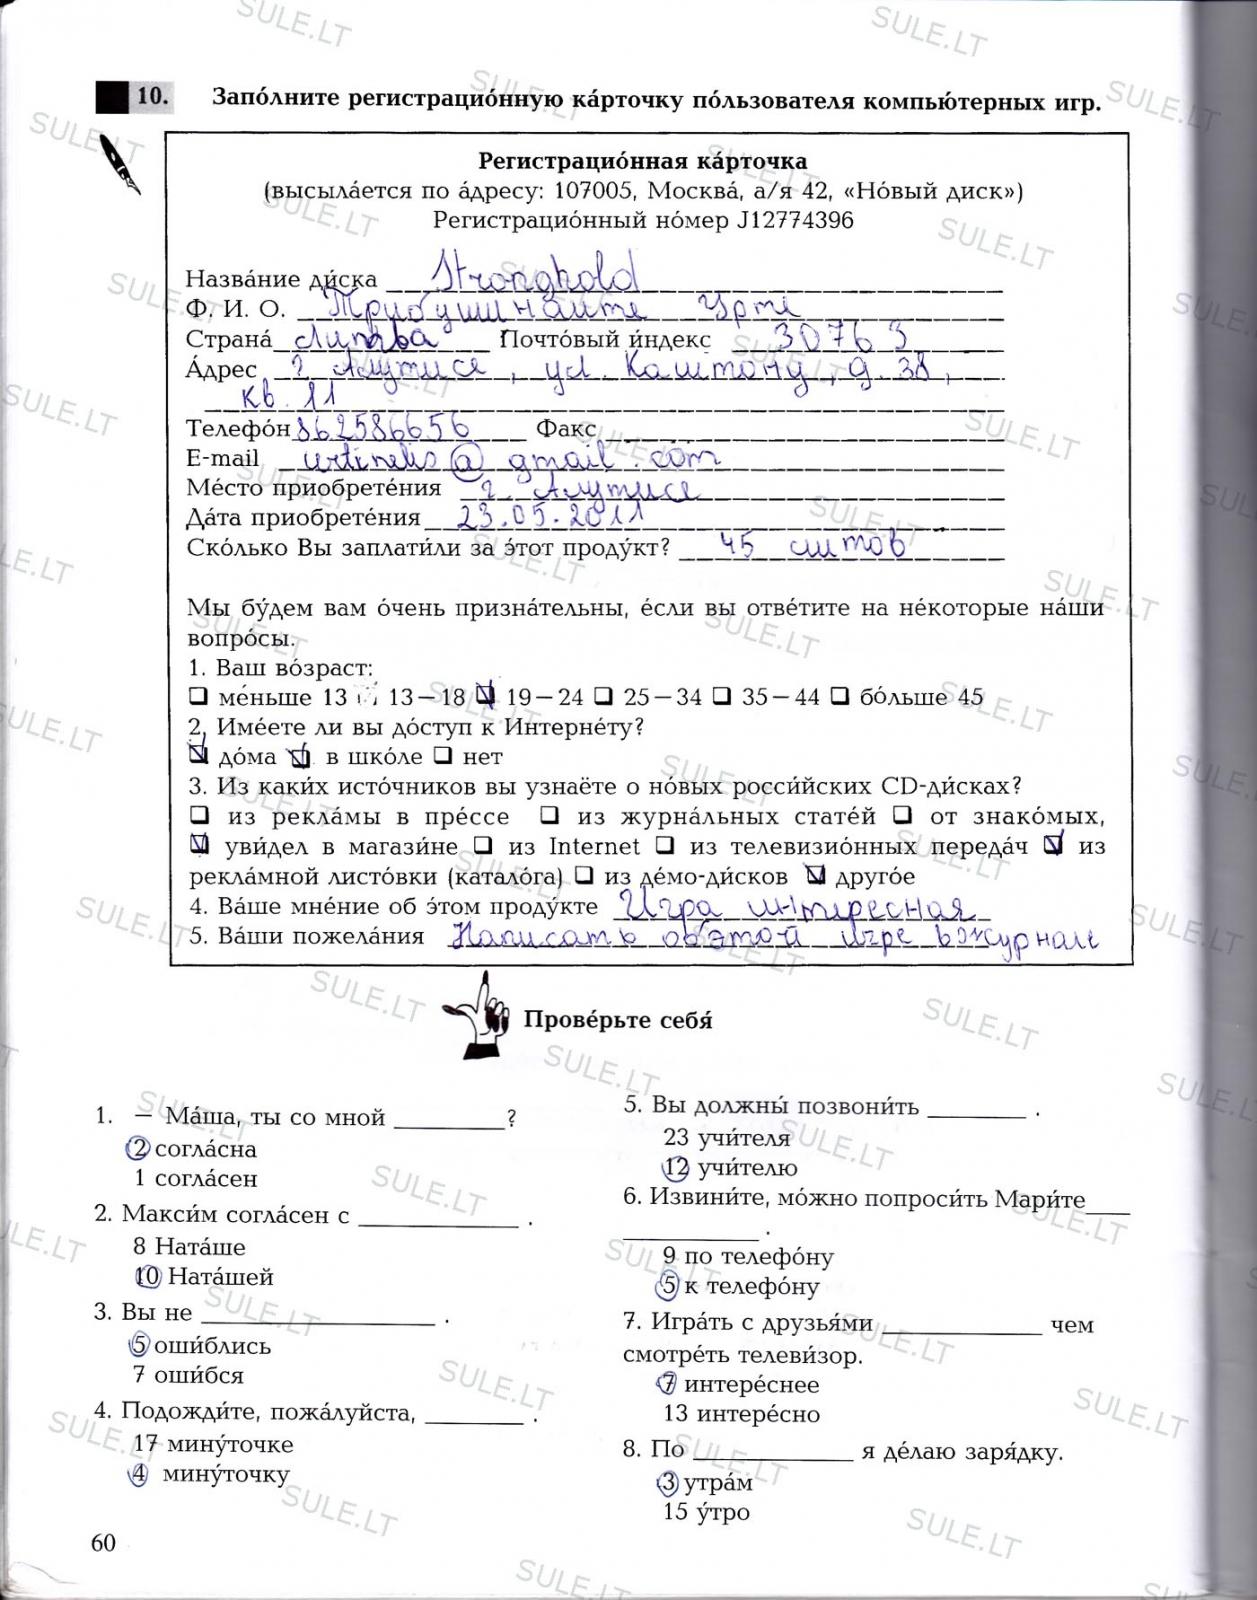 10. Запо́лните регистрацио́нную ка́рточку по́льзователя компью́терных игр.
Регистрацио́нная ка́рточка
(высыла́ется по а́дресу: 107005, Москва́, а/я 42, «Но́вый диск»)
Регистрацио́нный но́мер J12774396
Назва́ние ди́ска Stronghold
Ф. И. О. Трибушинайте Урте
Страна́ Литва Почто́вый и́ндекс 30763
А́дрес г. Алутисе, ул. Каштону, д. 38,
кв. 11
Телефо́н 862586656 Факс
E-mail urtinelis@gmail.com
Ме́сто приобрете́ния г. Алутисе
Да́та приобрете́ния 23.05.2011
Ско́лько Вы заплати́ли за э́тот проду́кт? 45 литов
Мы бу́дем вам о́чень призна́тельны, е́сли вы отве́тите на не́которые на́ши
вопро́сы.
1. Ваш во́зраст:
❑ ме́ньше 13 13 – 18 ☑ 19 – 24 ❑ 25 – 34 ❑ 35 – 44 ❑ бо́льше 45
2. Име́ете ли вы до́ступ к Интерне́ту?
☑ до́ма ☑ в шко́ле ❑ нет
3. Из каки́х исто́чников вы узнаёте о но́вых росси́йских CD-ди́сках?
❑ из рекла́мы в пре́ссе ❑ из журна́льных стате́й ❑ от знако́мых,
☑ уви́дел в магази́не ❑ из Internet ❑ из телевизио́нных переда́ч ☑ из
рекла́мной листо́вки (катало́га) ❑ из де́мо-ди́сков ☑ друго́е
4. Ва́ше мне́ние об э́том проду́кте Игра интересная
5. Ва́ши пожела́ния Написать об этой игре в журнале
Прове́рьте себя́
1. – Ма́ша, ты со мной ________?
2 согла́сна
1 согла́сен
2. Макси́м согла́сен с ________ .
8 Ната́ше
10 Ната́шей
3. Вы не ________ .
5 оши́блись
7 оши́бся
4. Подожди́те, пожа́луйста, ________ .
17 мину́точке
4 мину́точку
5. Вы должны́ позвони́ть ________ .
23 учи́теля
12 учи́телю
6. Извини́те, мо́жно попроси́ть Мари́те____
________ .
9 по телефо́ну
5 к телефо́ну
7. Игра́ть с друзья́ми ________ чем
смотре́ть телеви́зор.
7 интере́снее
13 интере́сно
8. По ________ я де́лаю заря́дку.
3 утра́м
15 у́тро
60
SULE.LT